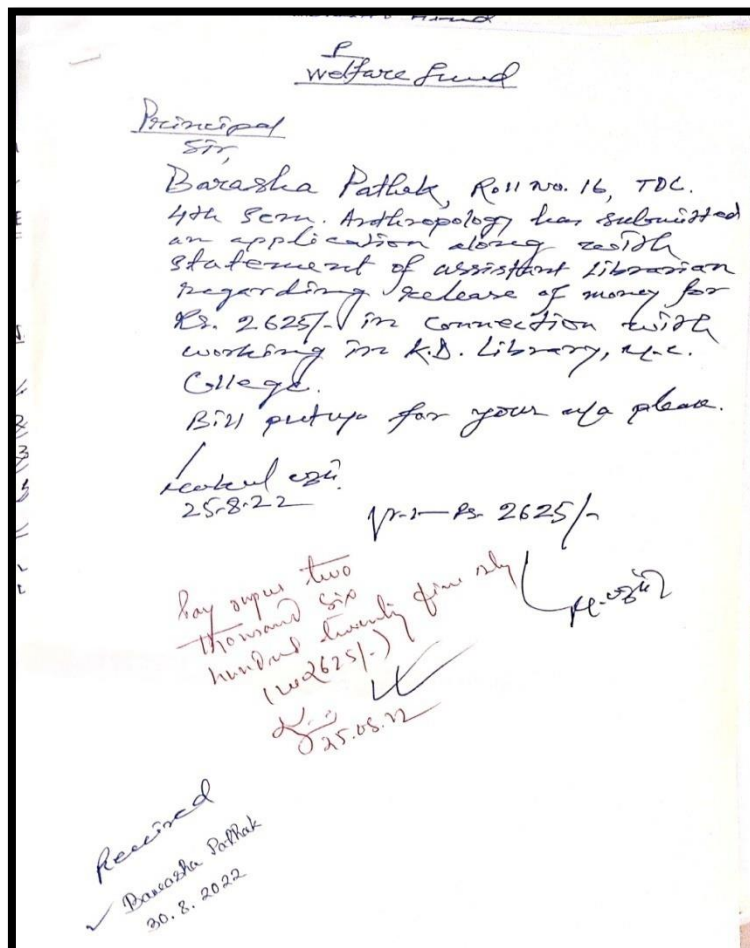 P
Welfare Fund
Principal
Sir,
Barasha Pathak, Roll No. 16, TDC.
4th Sem. Anthropology has submitted
an application along with
statement of assistant Librarian
regarding release of money for
Rs. 2625/- in connection with
working in K.D. Library, M.C.
College.
Bill putup for your n/a please.
25.8.22
Rs. 2625/-
Pay rupees two
thousand six
hundred twenty five only
2625/-)
25.08.22
Received
Barasha Pathak
30.8.2022